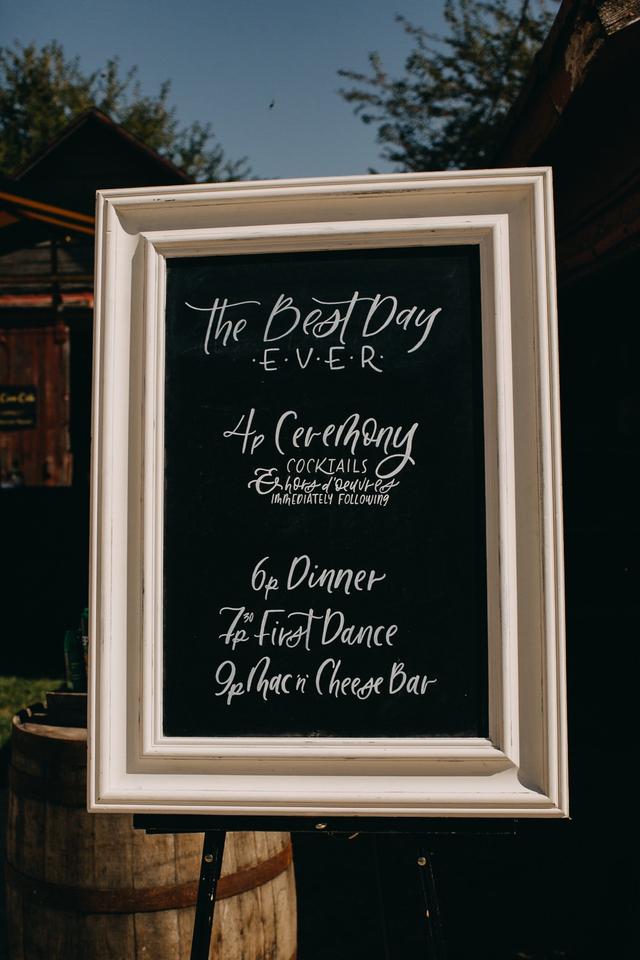 the Best Day
·E·V·E·R·
4p Ceremony
COCKTAILS
& hors d'oeuvres
IMMEDIATELY FOLLOWING
6p Dinner
7³⁰p First Dance
9p Mac n' Cheese Bar